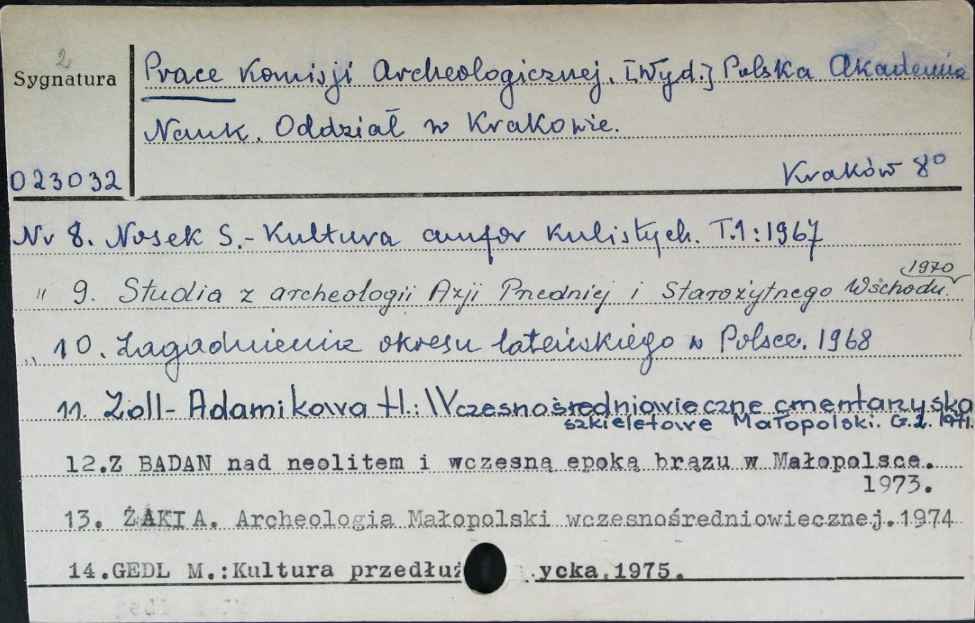 2
Sygnatura
Prace Komisji Archeologicznej. [Wyd.] Polska Akademia
Nauk. Oddział w Krakowie.
023032
Kraków 8°
Nr 8. Nosek S.- Kultura amfor kulistych. T.1:1967
" 9. Studia z archeologii Azji Przedniej i Starożytnego Wschodu. 1970
" 10. Zagadnienia okresu lateńskiego w Polsce. 1968
11. Zoll-Adamikowa H.: Wczesnośredniowieczne cmentarzysko
szkieletowe Małopolski. Cz.2. 1971.
12.Z BADAN nad neolitem i wczesną epoką brązu w Małopolsce.
1973.
13. ŻAKI A. Archeologia Małopolski wczesnośredniowiecznej.1974
14.GEDL M.:Kultura przedłuż ycka.1975.